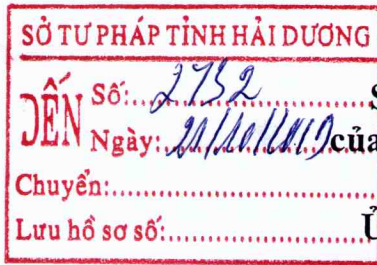 SỞ TƯ PHÁP TỈNH HẢI DƯƠNG
ĐẾN
Số: 2732
Ngày: của
Chuyển:
Lưu hồ sơ số: